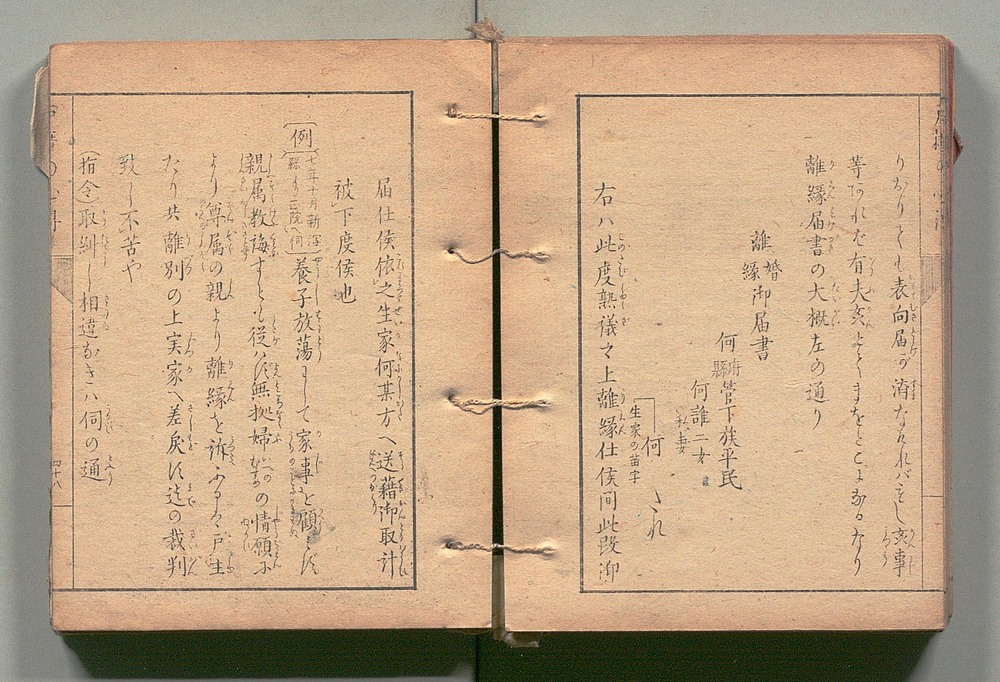 りありとも表向届可済なけれバもし亥事
等これを有夫亥とくまをとこになるなり
離縁届書の大概左の通り
離縁婚御届書
何府縣管下族平民
何誰二女
私妻
何
たれ
生家の苗字
右ハ此度熟議之上離縁仕候間此段御
届仕候依之生家何某方へ送籍御取計
被下度候也
例 七年十月新潟縣より正院へ伺 養子放蕩にして家事を顧ミす
親属教誨すとも従ハす無拠婦妻の情願に
より尊属の親より離縁を訴ふる々戸主
たり共離別の上実家へ差戻す迄の裁判
致し不苦や
(指令)取糾し相違なきハ伺の通
四十八